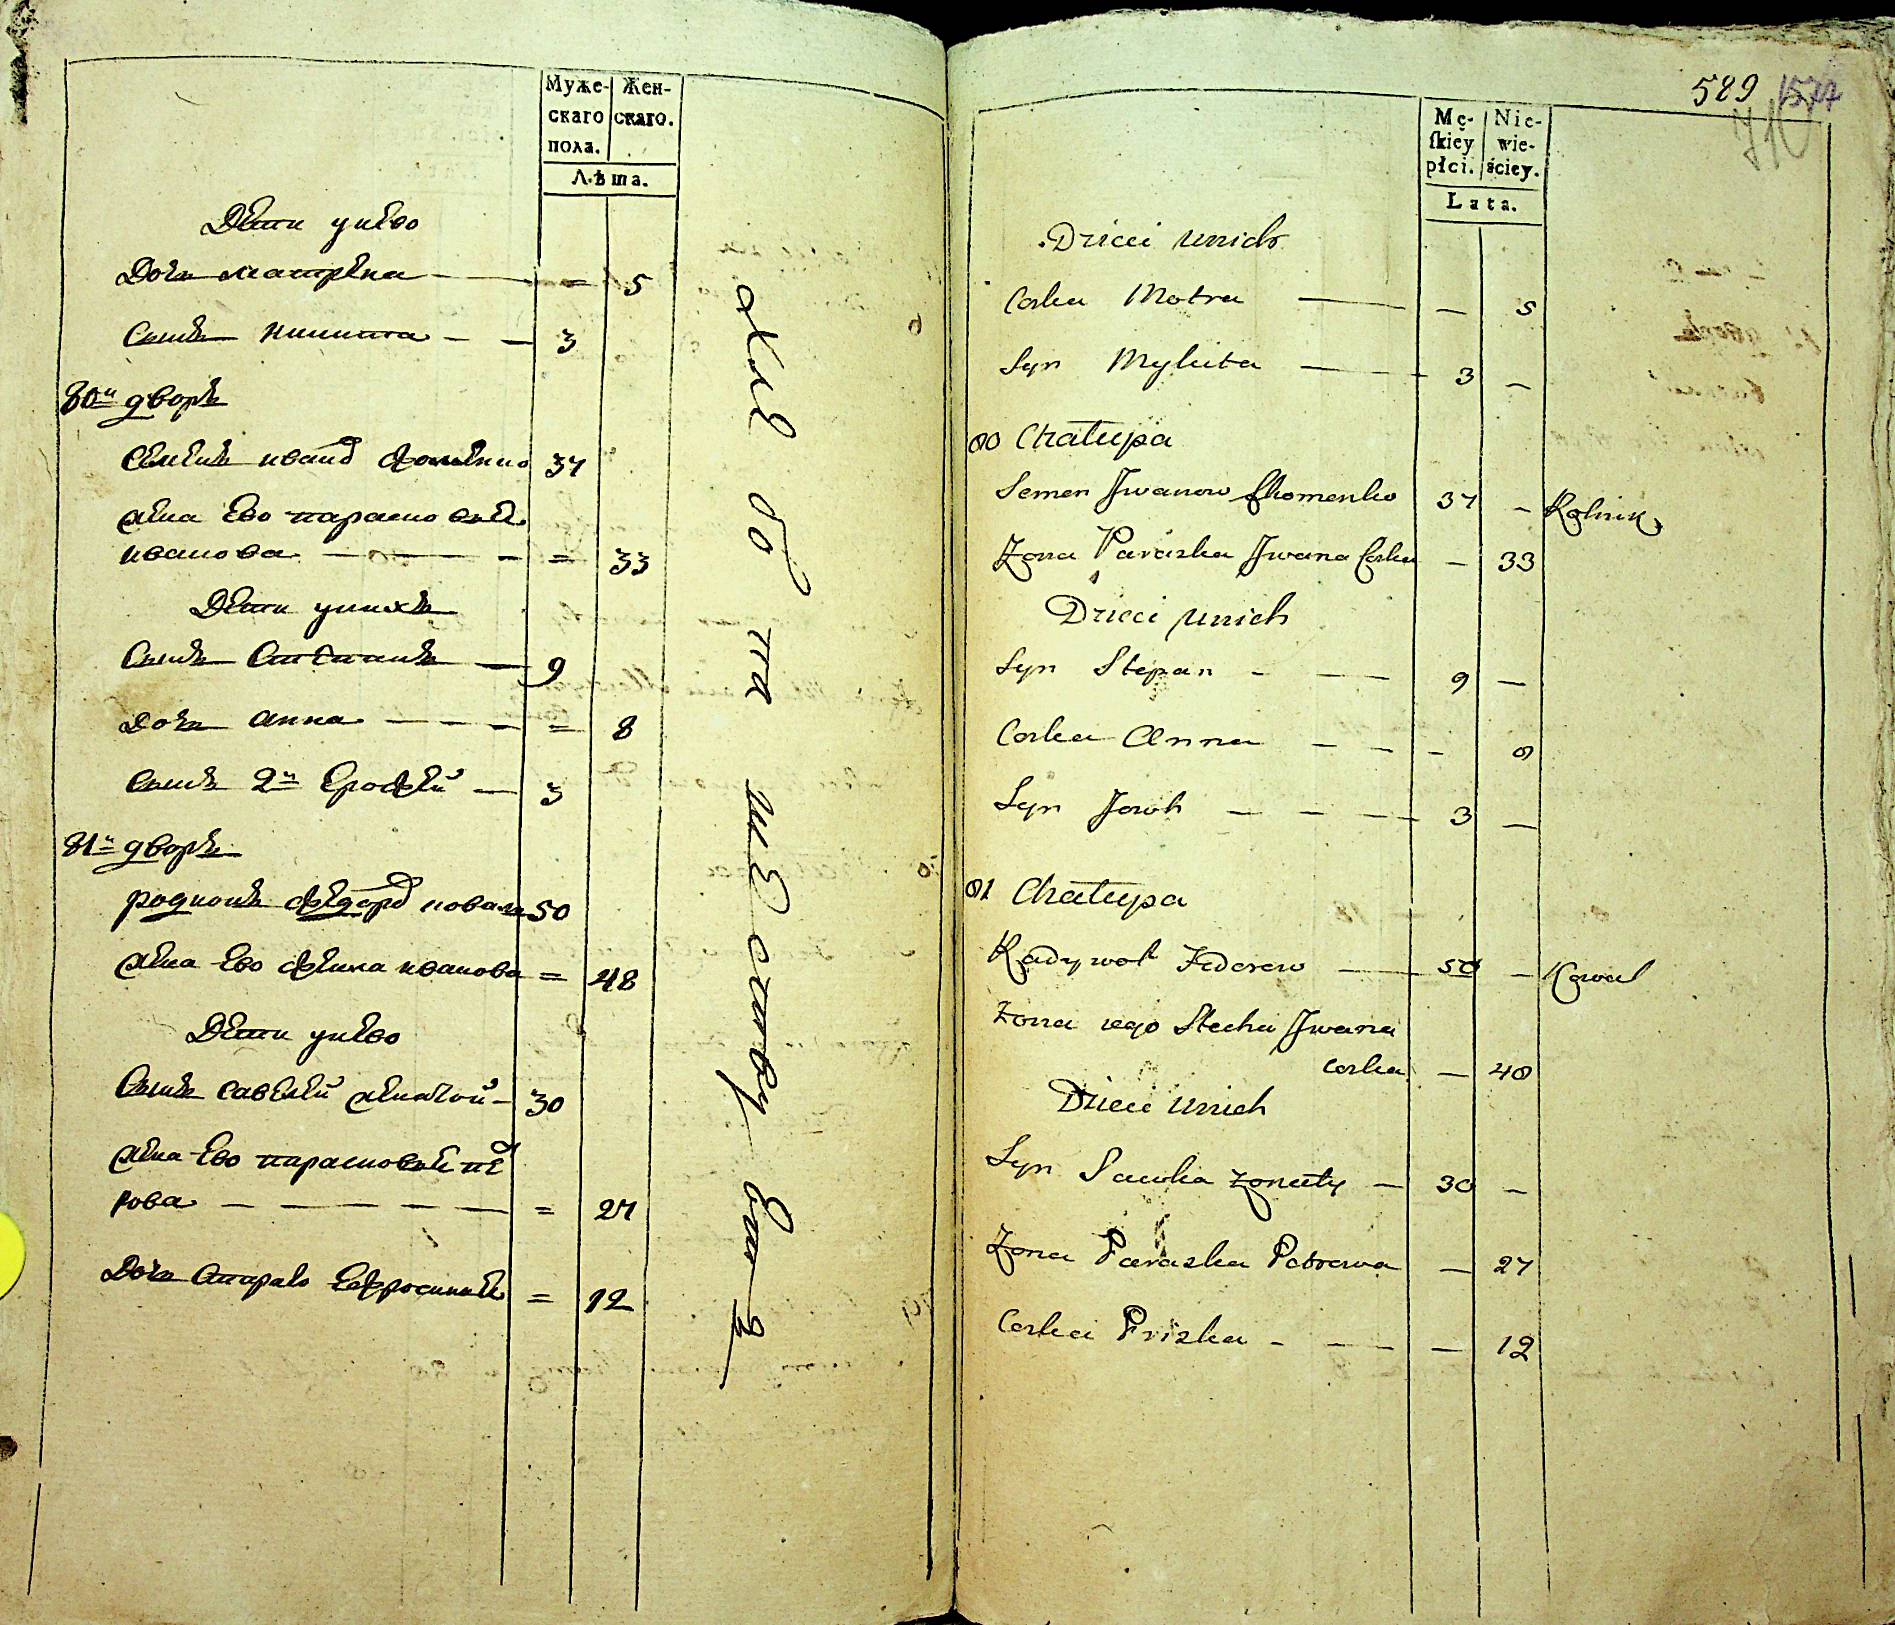 Муже-
скаго
пола.
Жен-
скаго.
Лѣта.
Дети унево
Дочь матрена — = 5
Сынъ никита — — 3
80й дворъ
Семенъ ивановъ фоменко 37
жена ево парасковея
иванова — — — = 33
Дети унихъ
Сынъ Степанъ — 9
дочь анна — — — = 8
сынъ 2й Ерофей — 3
81й дворъ
родионъ федоровъ коваль 50
жена ево фекла иванова = 48
Дети унево
Сынъ савелей женатой — 30
жена ево парасковея пет
рова — — — — = 27
Дочь Ефросиния = 12
589
Mę-
ſkiey
płci.
Nie-
wie-
ściey.
Lata.
Dzieci Unich
Corka Motra — — 5
Syn Mykita — 3 —
80 Chałupa
Semen Jwanow Chomenko 37 — Rolnik
Zona Paraska Jwana Corka — 33
Dzieci Unich
Syn Stepan - — — 9 —
Corka Anna — — - 8
Syn Jowh — — — 3 —
81 Chałupa
Radywoł Fedorow — 50 — Kowal
Zona iego Stecha Jwana
corka — 48
Dzieci Unich
Syn Sawka zonaty — 30 —
Zona Paraska Petrowa — 27
Corka Priska - — — — 12